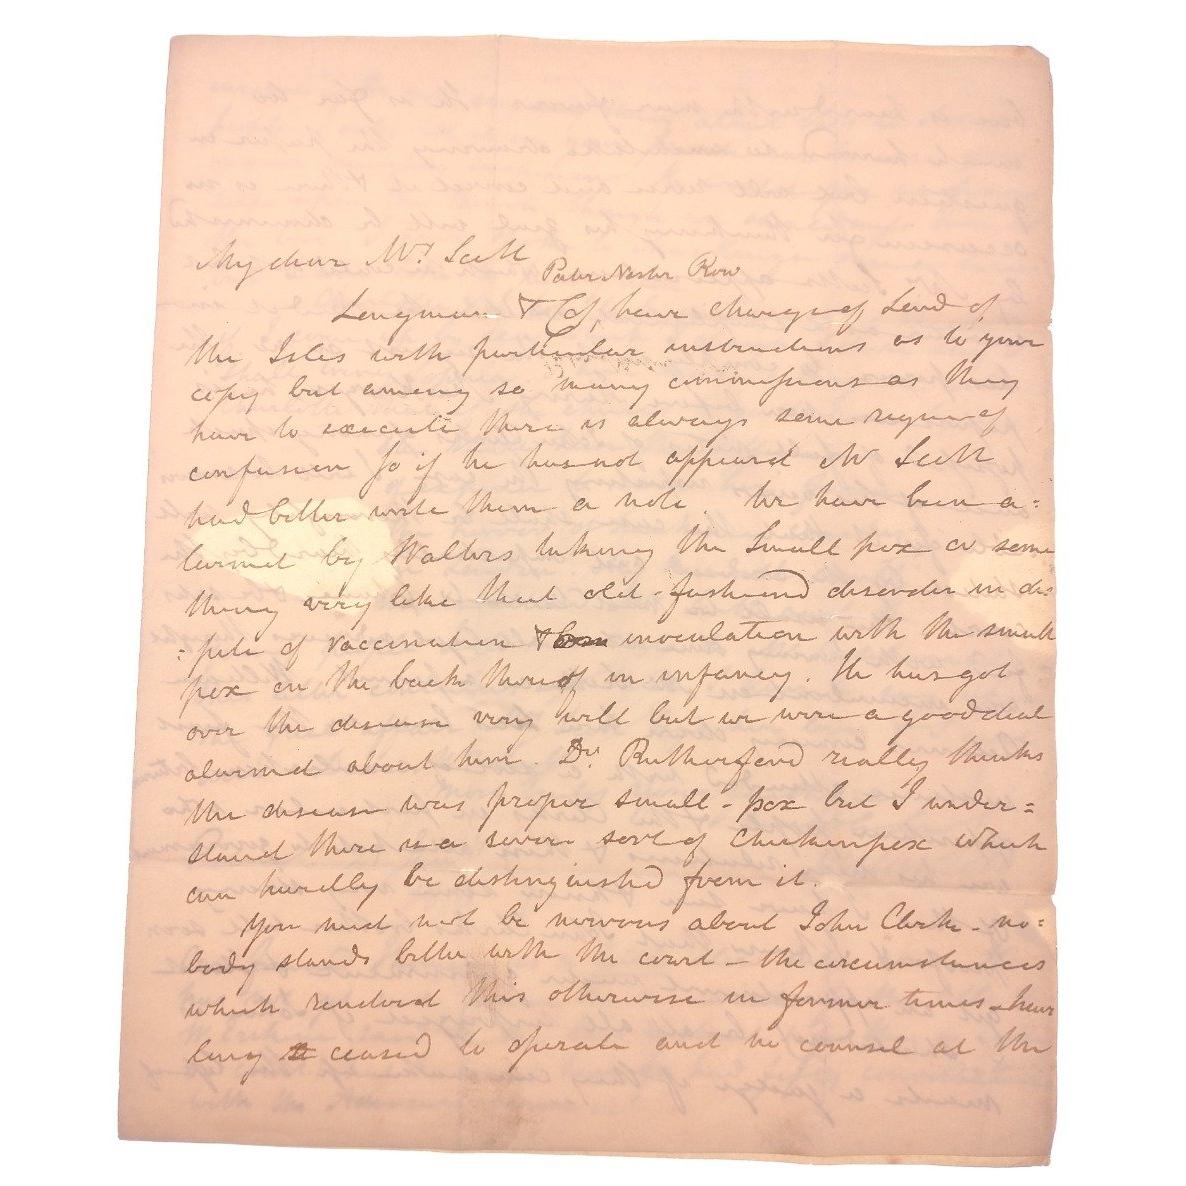 My dear Mrs Scott
Pater Noster Row
Longman & Co, have charge of Lord of
the Isles with particular instructions as to your
copy but among so many commissions as they
have to execute there is always some
confusion So if he has not appeard Mr Scott
had better write them a note. We have been a=
larmed by Walters taking the Small pox or some
thing very like that old-fashiond disorder in des
=pite of vaccination & inoculation with the small
pox on the back thereof in infancy. He has got
over the disease very well but we were a good deal
alarmd about him. Dr. Rutherford really thinks
the disease was proper small-pox but I under=
stand there is a severe sort of Chickenpox which
can hardly be distinguishd from it.
You need not be nervous about John Clerk - no=
body stands better with the court - the circumstances
which renderd this otherwise in former times have
long ceased to operate and no counsel at the